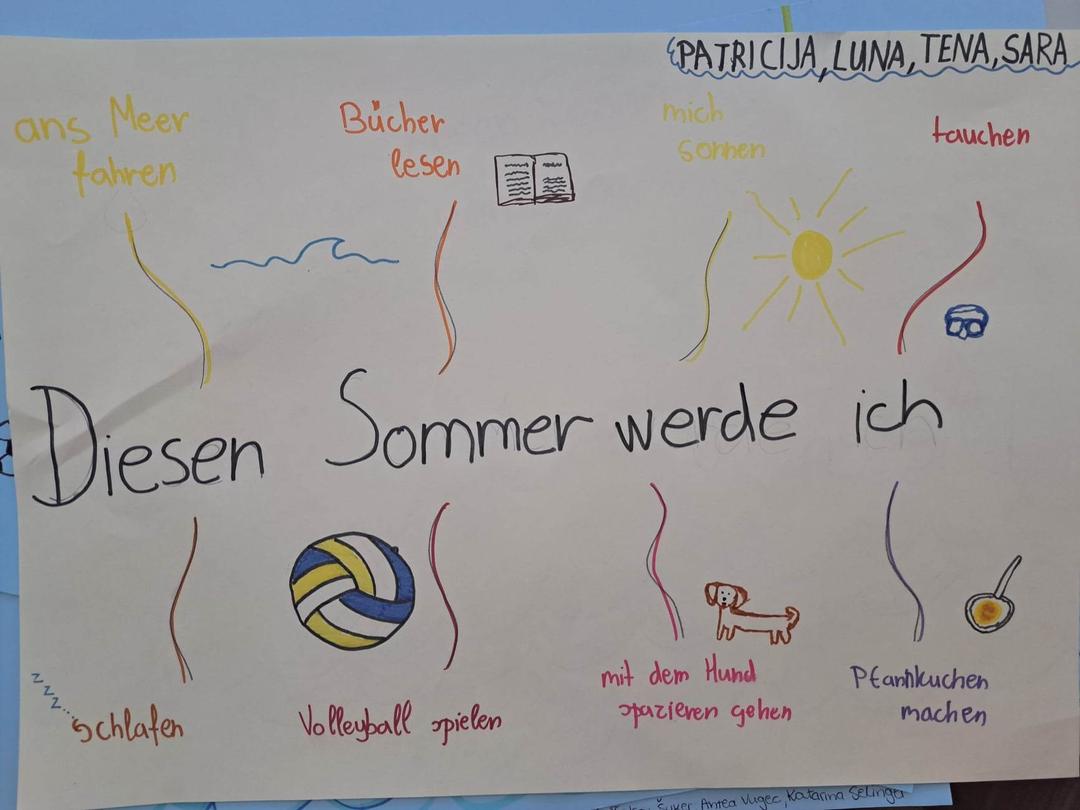 PATRICIJA, LUNA, TENA, SARA
ans Meer
fahren
Bücher
lesen
mich
sonnen
tauchen
Diesen Sommer werde ich
zzz...
schlafen
Volleyball spielen
mit dem Hund
spazieren gehen
Pfannkuchen
machen
Šuker, Antea Vugec, Katarina Selinger